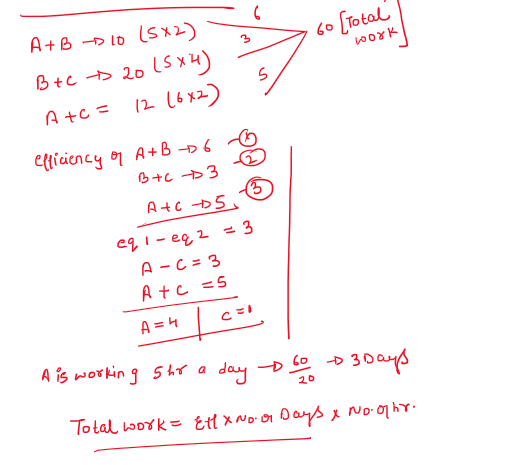 A+B → 10 (5x2) 6
B+C → 20 (5x4) 3 60 [Total work]
A+C = 12 (6x2) 5
efficiency of A+B → 6 - ①
B+C → 3 - ②
A+C → 5 - ③
eq 1 - eq 2 = 3
A - C = 3
A + C = 5
A = 4 | C = 1
A is working 5 hr a day → 60/20 → 3 Days
Total work = Eff x No. of Days x No. of hr.